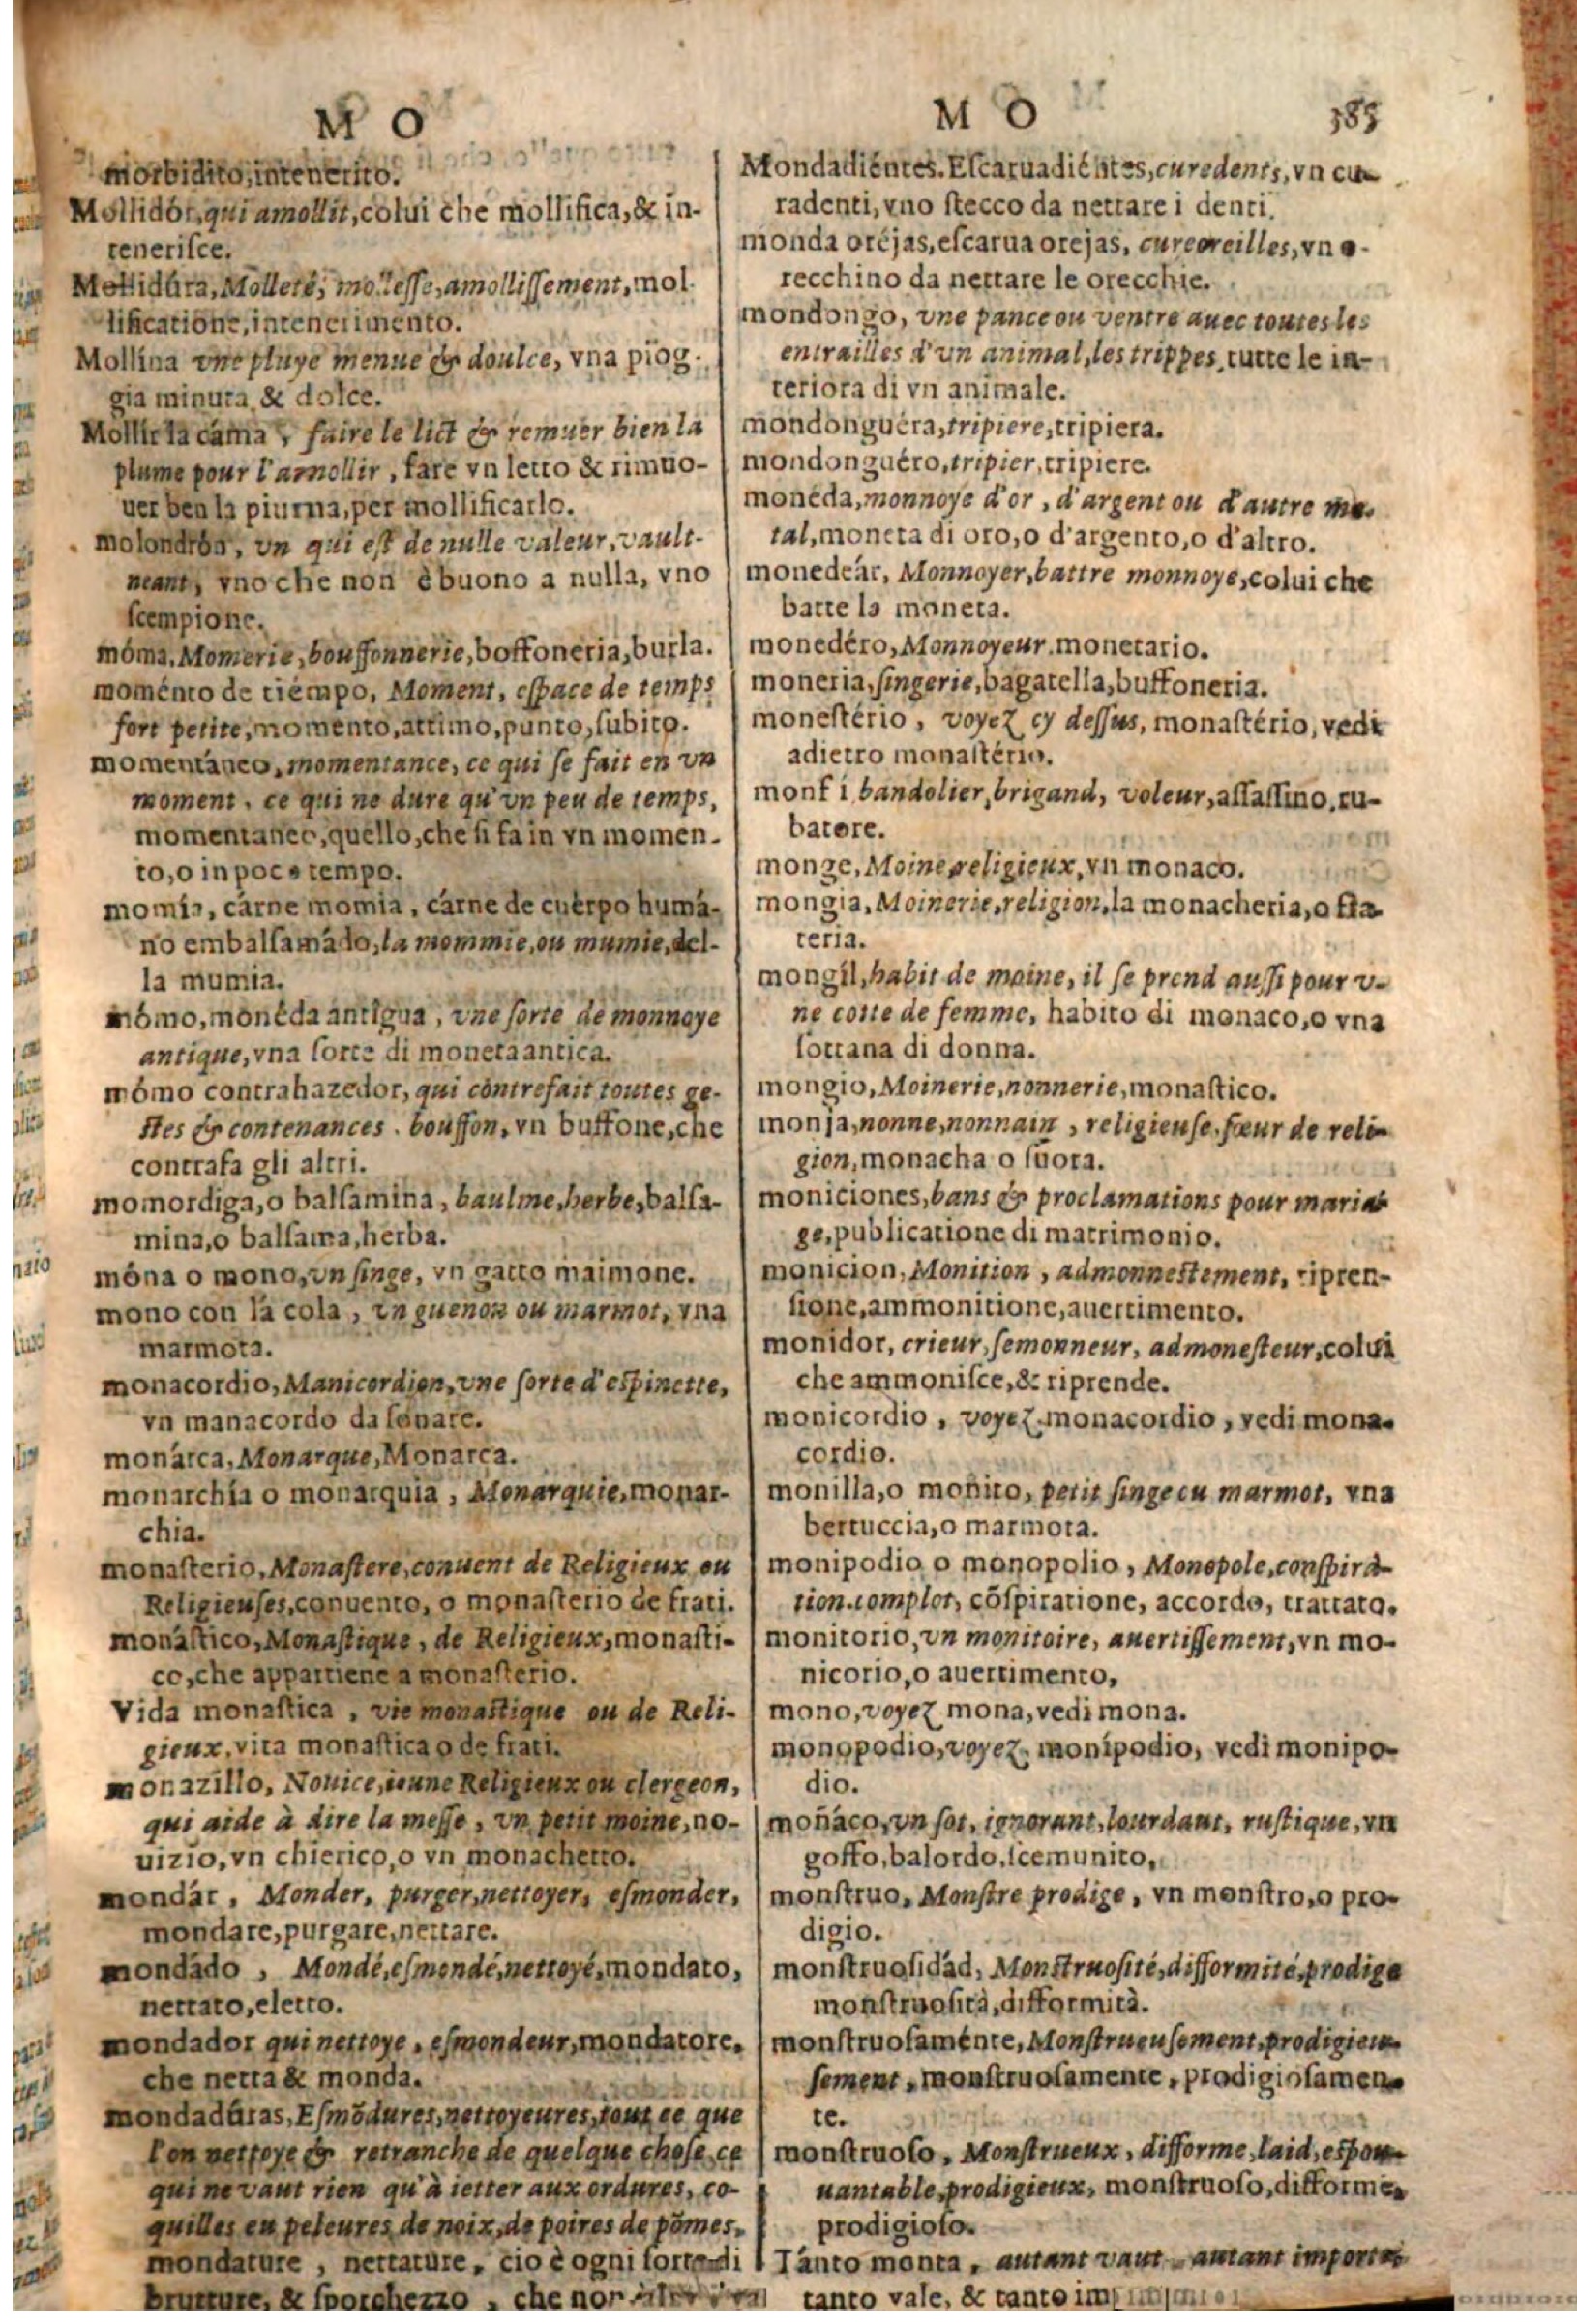 M O
morbidito, intenerito.
Mollidór, qui amollit, colui che mollifica, & in-
teneriſce.
Mollidúra, Molleté, molleſſe, amolliſſement, mol-
lificatione, intenerimento.
Mollína vne pluye menue & doulce, vna piog-
gia minuta & dolce.
Mollir la cáma, faire le lict & remuer bien la
plume pour l'amollir, fare vn letto & rimuo-
uer ben la piuma, per mollificarlo.
molondrón, vn qui eſt de nulle valeur, vault-
neant, vno che non è buono a nulla, vno
ſcempione.
móma, Momerie, bouffonnerie, boffoneria, burla.
moménto de tiémpo, Moment, eſpace de temps
fort petite, momento, attimo, punto, ſubito.
momentáneo, momentance, ce qui ſe fait en vn
moment, ce qui ne dure qu'vn peu de temps,
momentaneo, quello, che ſi fa in vn momen-
to, o in poco tempo.
momía, cárne momia, cárne de cuèrpo humá-
no embalſamádo, la mommie, ou mumie, del-
la mumia.
mómo, monéda antígua, vne ſorte de monnoye
antique, vna ſorte di moneta antica.
mómo contrahazedor, qui contrefait toutes ge-
ſtes & contenances, bouffon, vn buffone, che
contrafa gli altri.
momordiga, o balſamina, baulme, herbe, balſa-
mina, o balſama, herba.
móna o mono, vn ſinge, vn gatto maimone.
mono con la cola, vn guenon ou marmot, vna
marmota.
monacordio, Manicordion, vne ſorte d'eſpinette,
vn manacordo da ſonare.
monárca, Monarque, Monarca.
monarchía o monarquia, Monarquie, monar-
chia.
monaſterio, Monaſtere, conuent de Religieux ou
Religieuſes, conuento, o monaſterio de frati.
monáſtico, Monaſtique, de Religieux, monaſti-
co, che appartiene a monaſterio.
Vida monaſtica, vie monaſtique ou de Reli-
gieux, vita monaſtica o de frati.
monazillo, Nouice, ieune Religieux ou clergeon,
qui aide à dire la meſſe, vn petit moine, no-
uizio, vn chierico, o vn monachetto.
mondár, Monder, purger, nettoyer, eſmonder,
mondare, purgare, nettare.
mondádo, Mondé, eſmondé, nettoyé, mondato,
nettato, eletto.
mondador qui nettoye, eſmondeur, mondatore,
che netta & monda.
mondadúras, Eſmõdures, nettoyeures, tout ce que
l'on nettoye & retranche de quelque choſe, ce
qui ne vaut rien qu'à ietter aux ordures, co-
quilles eu peleures de noix, de poires de põmes,
mondature, nettature, cio è ogni ſorte di
brutture, & ſporchezzo, che non
M O 385
Mondadiéntes. Eſcaruadiéntes, curedents, vn cu-
radenti, vno ſtecco da nettare i denti.
monda oréjas, eſcarua orejas, cureoreilles, vn o-
recchino da nettare le orecchie.
mondongo, vne pance ou ventre auec toutes les
entrailles d'vn animal, les trippes, tutte le in-
teriora di vn animale.
mondonguéra, tripiere, tripiera.
mondonguéro, tripier, tripiere.
monéda, monnoye d'or, d'argent ou d'autre me-
tal, moneta di oro, o d'argento, o d'altro.
monedeár, Monnoyer, battre monnoye, colui che
batte la moneta.
monedéro, Monnoyeur, monetario.
moneria, ſingerie, bagatella, buffoneria.
moneſtério, voyez cy deſſus, monaſtério, vedi
adietro monaſtério.
monf i bandolier, brigand, voleur, aſſaſſino, ru-
batore.
monge, Moine, religieux, vn monaco.
mongia, Moinerie, religion, la monacheria, o fra-
teria.
mongíl, habit de moine, il ſe prend auſſi pour v-
ne cotte de femme, habito di monaco, o vna
ſottana di donna.
mongio, Moinerie, nonnerie, monaſtico.
monja, nonne, nonnain, religieuſe, ſœur de reli-
gion, monacha o ſuora.
moniciones, bans & proclamations pour maria-
ge, publicatione di matrimonio.
monicion, Monition, admonneſtement, ripren-
ſione, ammonitione, auertimento.
monidor, crieur, ſemonneur, admoneſteur, colui
che ammoniſce, & riprende.
monicordio, voyez monacordio, vedi mona-
cordio.
monilla, o moñito, petit ſinge cu marmot, vna
bertuccia, o marmota.
monipodio o monopolio, Monopole, conſpira-
tion, complot, cõſpiratione, accordo, trattato.
monitorio, vn monitoire, auertiſſement, vn mo-
nicorio, o auertimento,
mono, voyez mona, vedi mona.
monopodio, voyez monípodio, vedi monipo-
dio.
moñáco, vn ſot, ignorant, lourdaut, ruſtique, vn
goffo, balordo, ſcemunito,
monſtruo, Monſtre prodige, vn monſtro, o pro-
digio.
monſtruoſidád, Monſtruoſité, difformité, prodige
monſtruoſità, difformità.
monſtruoſaménte, Monſtrueuſement, prodigieu-
ſement, monſtruoſamente, prodigioſamen-
te.
monſtruoſo, Monſtrueux, difforme, laid, eſpou-
uantable, prodigieux, monſtruoſo, difforme,
prodigioſo.
Tánto monta, autant vaut, autant importe
tanto vale, & tanto